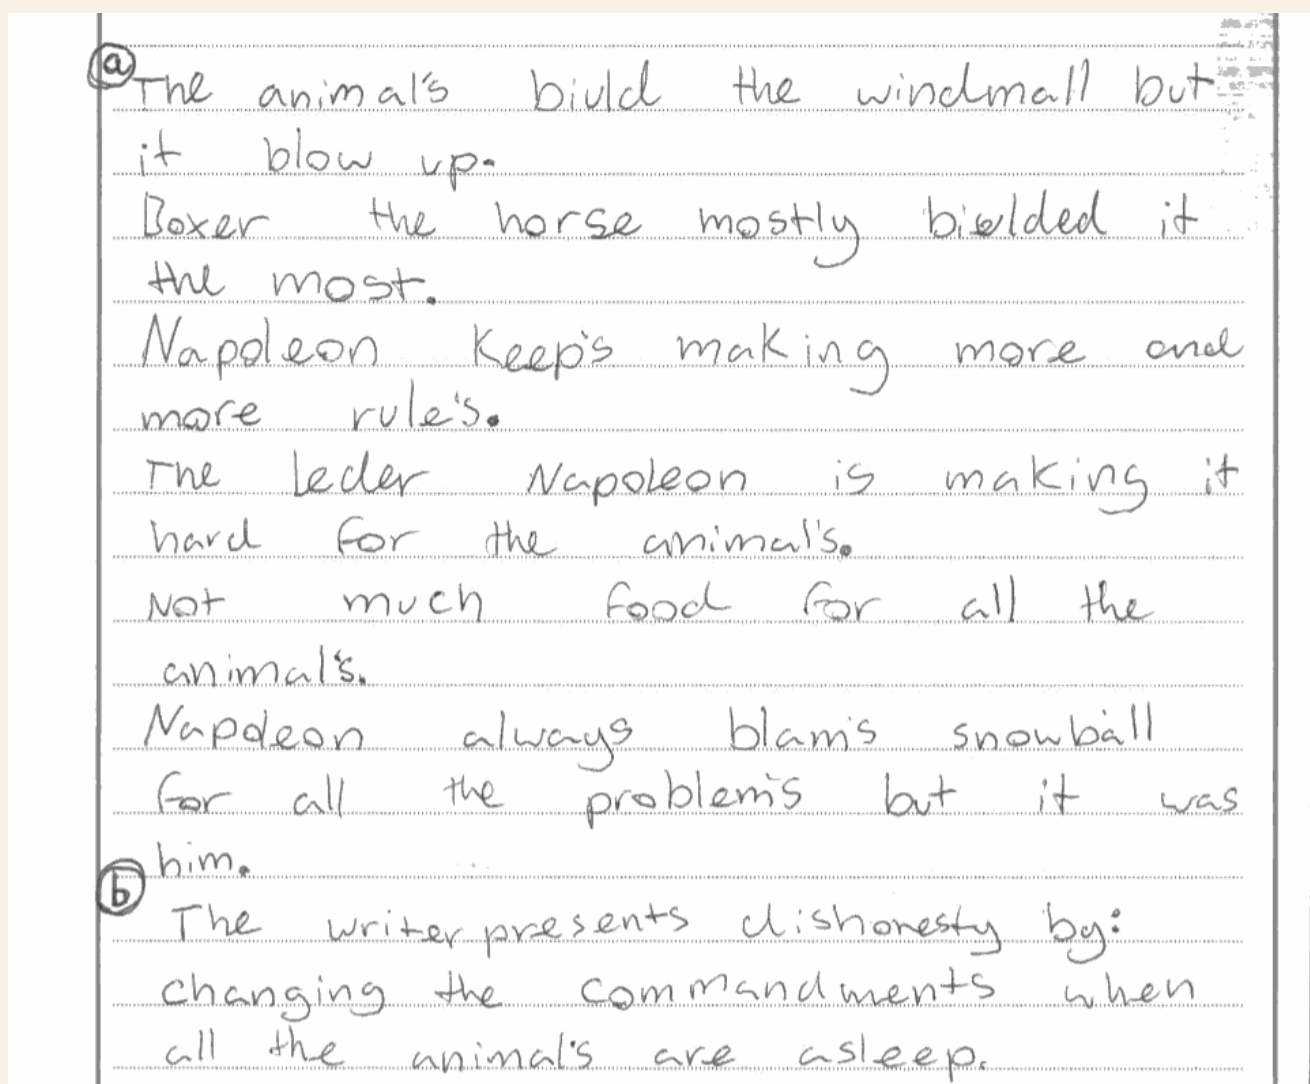 a
The animal's biuld the windmall but
it blow up.
Boxer the horse mostly bielded it
the most.
Napoleon Keep's making more and
more rule's.
The leder Napoleon is making it
hard for the animal's.
Not much food for all the
animal's.
Napoleon always blam's snowball
for all the problem's but it was
him.
b
The writer presents dishonesty by:
changing the commandments when
all the animal's are asleep.